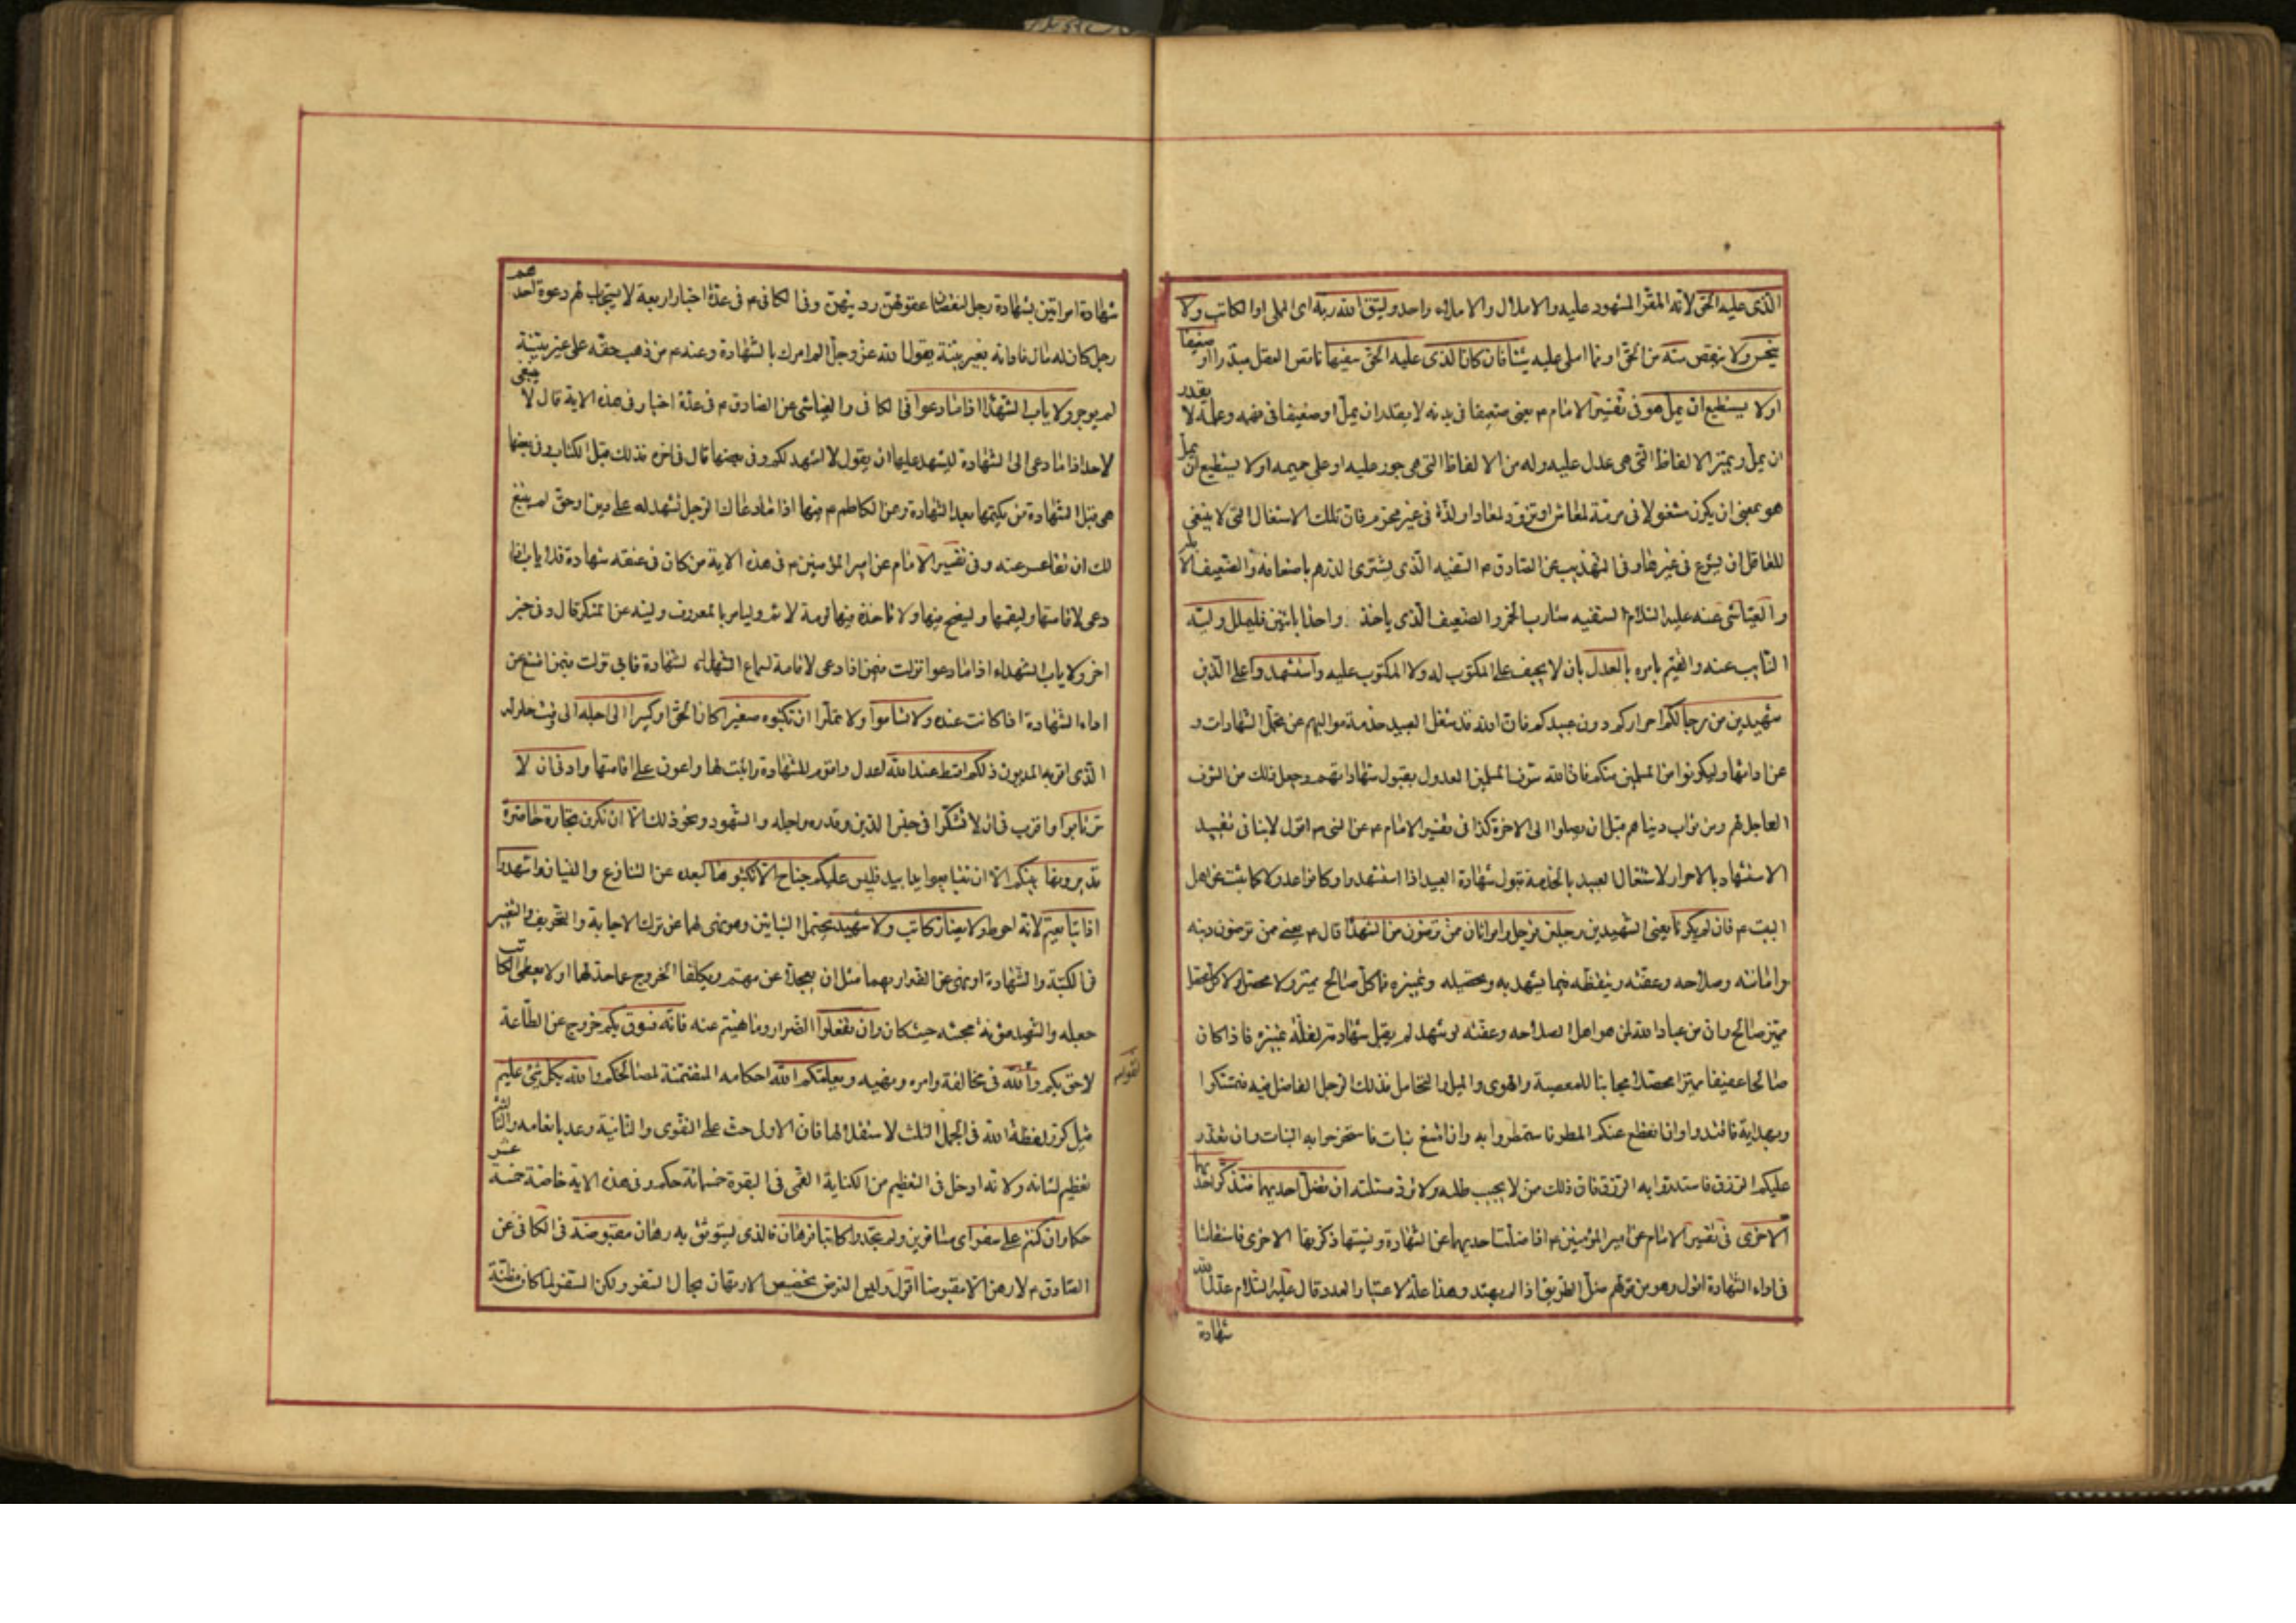 الذى عليه الحق لانه المقر المشهود عليه والاملال والاملاء واحد وليتق الله ربه اى المملى او الكاتب ولا
يبخس ولا ينقص منه من الحق او مما املى عليه شيئا فان كان الذى عليه الحق سفيها ناقص العقل مبذرا او ضعيفا
او لا يستطيع ان يمل هو فى تفسير الامام م يعنى ضعيفا فى بدنه لا يقدر ان يمل او ضعيفا فى فهمه وعلمه لا يقدر
ان يمل ويميز الالفاظ التى هى عدل عليه وله من الالفاظ التى هى جور عليه او على حميمه او لا يستطيع ان يمل
هو بمعنى ان يكون مشغولا فى مرمة لمعاش او تزود لمعاد او لذة فى غير محرم فان تلك الاشغال التى لا ينبغى
للعاقل ان يشرع فى غيرها وفى التهذيب عن الصادق م السفيه الذى يشترى الدرهم باضعافه والضعيف الابله
والعياشى عنه عليه السلام السفيه شارب الخمر والضعيف الذى ياخذ واحدا باثنين فليملل وليه
النايب عنه والقيم بامره بالعدل بان لا يحيف على المكتوب له ولا المكتوب عليه واستشهدوا على الدين
شهيدين من رجالكم احراركم دون عبيدكم فان الله قد شغل العبيد بخدمة مواليهم عن تحمل الشهادات و
عن ادائها وليكونوا من المسلمين منكم فان الله شرف المسلمين العدول بقبول شهاداتهم وجعل ذلك من الشرف
العاجل لهم ومن ثواب دنياهم قبل ان يصلوا الى الاخرة كذا فى تفسير الامام م عن النبى م اقول لا ينافى تقييد
الاستشهاد بالاحرار لاشتغال العبيد بالخدمة قبول شهادة العبيد اذا استشهدوا وكانوا عدولا كما يثبت عن اهل
البيت م فان لم يكونا يعنى الشهيدين رجلين فرجل وامراتان ممن ترضون من الشهداء قال م يعنى ممن ترضون دينه
وامانته وصلاحه وعفته وتيقظه فيما يشهد به وتحصيله وتمييزه فما كل صالح مميز ولا محصل ولا كل محصل
مميز صالح وان من عباد الله لمن هو اهل لصلاحه وعفته لو شهد لم يقبل شهادته لقلة تمييزه فاذا كان
صالحا عفيفا مميزا محصلا مجانبا للمعصية والهوى والميل والتحامل فذلك الرجل الفاضل فيه فتمسكوا
وبهداية فاقتدوا وان انقطع عنكم المطر فاستمطروا به وان امتنع نبات فاستخرجوا به النبات وان تعذر
عليكم الرزق فاستدروا به الرزق فان ذلك ممن لا يخيب طلبه ولا ترد مسئلته ان تضل احديهما فتذكر احديهما
الاخرى فى تفسير الامام عن امير المؤمنين م اذا ضلت احديهما عن الشهادة ونسيتها ذكرتها الاخرى فاستقامتا
فى اداء الشهادة اقول وهو من قولهم ضل الطريق اذا لم يهتد وهذا علة لاعتبار العدد قال عليه السلام عدل الله
شهادة
شهادة امراتين بشهادة رجل لنقصان عقولهن ودينهن وفى الكافى م فى عدة اخبار اربعة لا يستجاب لهم دعوة احدهم
رجل كان له مال فادانه بغير بينة يقول الله عز وجل الم امرك بالشهادة وعنه م من ذهب حقه على غير بينة
لم يوجر ولا ياب الشهداء اذا ما دعوا فى الكافى والعياشى عن الصادق م فى عدة اخبار فى هذه الاية قال لا ينبغى
لاحد اذا ما دعى الى الشهادة ليشهد عليها ان يقول لا اشهد لكم وفى بعضها قال فى اخره فذلك قبل الكتاب وفى بعضها
هى قبل الشهادة من يكتمها بعد الشهادة وعن الكاظم م فيها اذا ما دعاك الرجل لتشهد له على دين او حق لم ينبغ
لك ان تقاعس عنه وفى تفسير الامام عن امير المؤمنين م فى هذه الاية من كان فى عنقه شهادة فلا ياب اذا
دعى لاقامتها وليقمها ولينصح فيها ولا تاخذه فيها لومة لائم وليامر بالمعروف ولينه عن المنكر قال وفى خبر
اخر ولا ياب الشهداء اذا ما دعوا نزلت فيمن اذا دعى لاقامة لسماع الشهداء لشهادة فابى نزلت فيمن امتنع عن
اداء الشهادة اذا كانت عنده ولا تساموا ولا تملوا ان تكتبوه صغيرا كان الحق او كبيرا الى اجله الى وقت حلوله
الذى اقر به المديون ذلكم اقسط عند الله اعدل واقوم للشهادة واثبت لها واعون على اقامتها وادنى ان لا
ترتابوا واقرب فى ان لا تشكوا فى جنس الدين وقدره واجله والشهود ونحو ذلك الا ان تكون تجارة حاضرة
تديرونها بينكم الا ان تتبايعوا يدا بيد فليس عليكم جناح الا تكتبوها لبعده عن التنازع والنسيان واشهدوا
اذا تبايعتم لانه احوط ولا يضار كاتب ولا شهيد يحتمل البنائين وهو نهى لهما عن ترك الاجابة والتحريف والتغيير
فى الكتبة والشهادة او نهى عن الضرار بهما مثل ان يعجلا عن مهم ويكلفا الخروج عما حد لهما او لا يعطى الكاتب
جعله والشهيد مؤنة مجيئه حيث كان وان تفعلوا الضرار وما نهيتم عنه فانه فسوق بكم خروج عن الطاعة
لاحق بكم واتقوا الله فى مخالفة وامره ونهيه ويعلمكم الله احكامه المتضمنة لمصالحكم والله بكل شئ عليم
قيل كرر لفظة الله فى الجمل الثلث لاستقلالها فان الاولى حث على التقوى والثانية وعد بانعامه والثالثة
تعظيم لشانه ولانه ادخل فى التعظيم من الكناية القمى فى البقرة خمسمائة حكم وفى هذه الاية خاصة خمسة عشر
حكما وان كنتم على سفر اى مسافرين ولم تجدوا كاتبا فرهان فالذى يستوثق به رهان مقبوضة فى الكافى عن
الصادق م لا رهن الا مقبوضا اقول وليس الغرض تخصيص الارتهان بحال السفر ولكن السفر لما كان مظنة